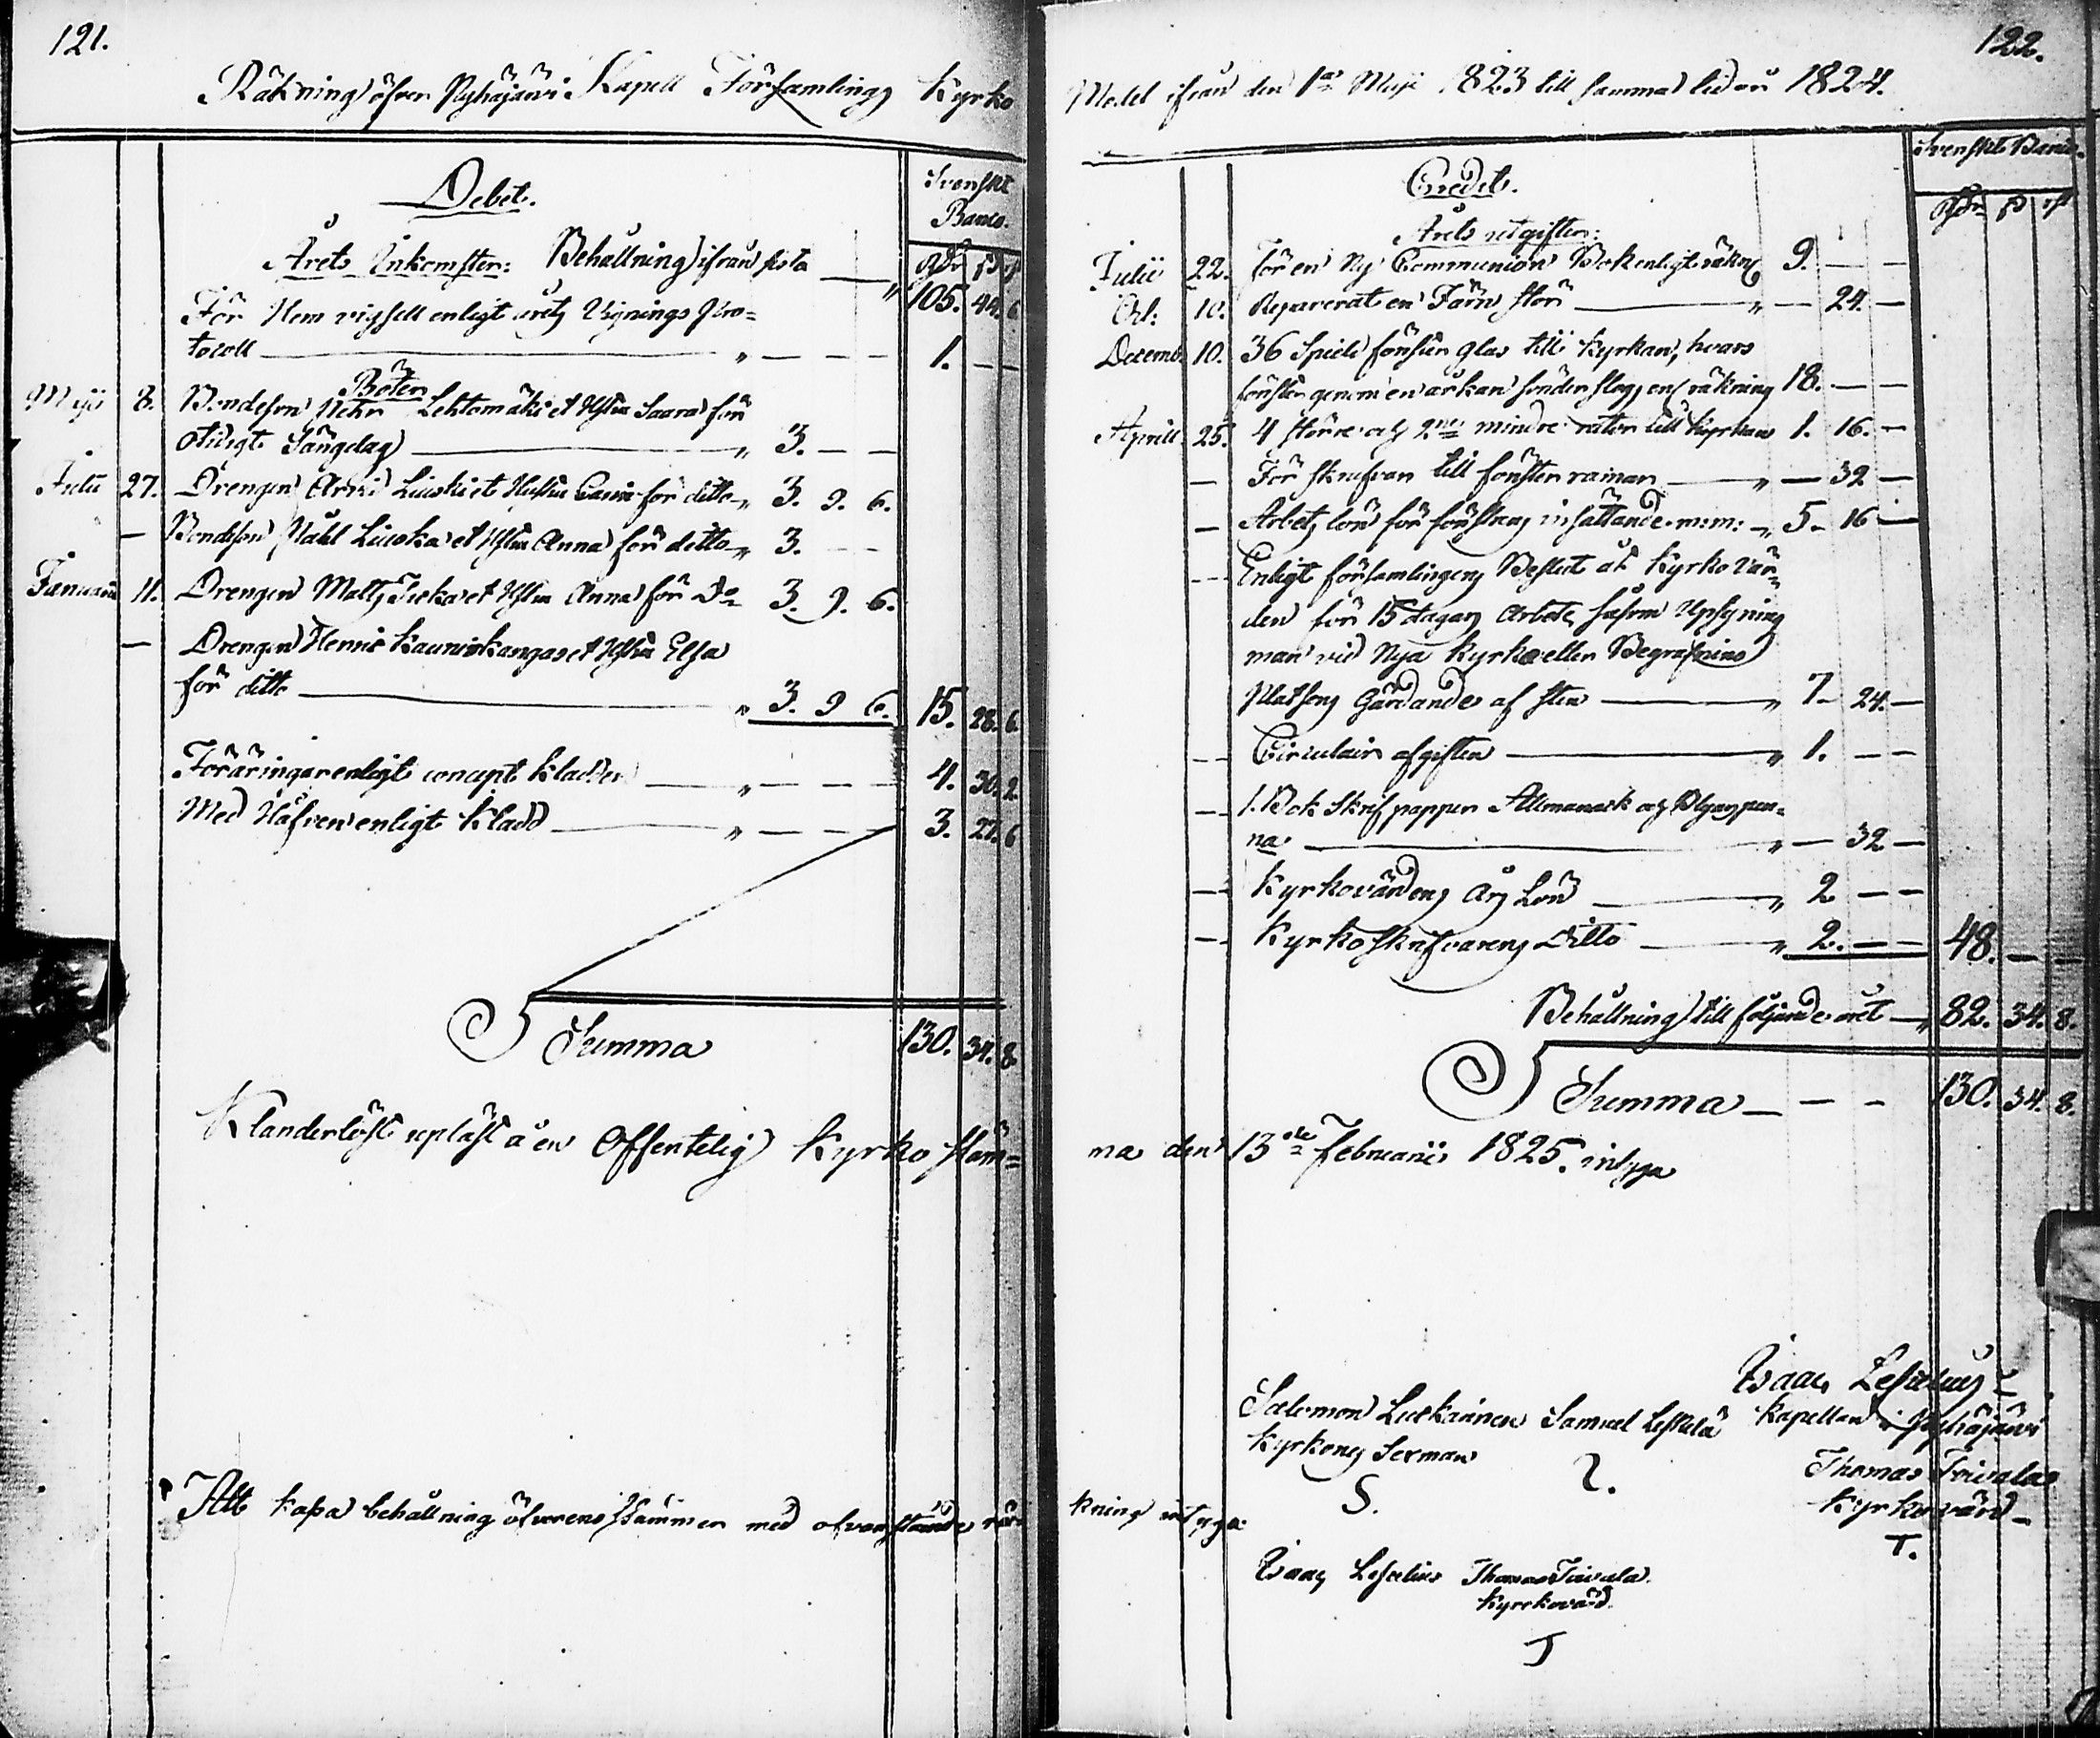 121.
Räkning öfver Pyhäjärvi Kapell Församlings Kyrko
Debet.
Svenskt
Banco.
Årets Inkomster: Behållning ifrån sista
105. 44. 6
För Hem vigsell enligt årets Vignings Pro=
tocoll 1. — —
Böter
Maji 8. Bondeson Pehr Lehtomäki et Hustru Saara för
otidigt Sängelag 3. — —
Julii 27. Drengen Arvid Liuski et Hustru Carin för ditto 3. 9. 6.
— Bondeson Påhl Liuska et Hustru Anna för ditto 3. — —
Januarii 11. Drengen Matts et Hustru Anna för Do 3. 9. 6.
— Drengen Henric Kauniskangas et Hustru Elsa
för ditto 3. 9 6. 15. 28. 6
Föräringar enligt concept kladden 4. 30. 2
Med Håfven enligt Kladd 3. 27. 6
Summa 130. 34. 8
Klanderlöst upläst å en Offentelig Kyrko stäm=
Att kassa behållning öfverens stämmer med ofvanstående räk
122.
Medel ifrån den 1a Maji 1823 till samma tid år 1824.
Svenskt Banco.
Credit.
Årets utgifter:
Rdr s rst
Julii 22. För en Ny Communion Bok enligt räkng 9. — —
Oct: 10. Reparerat en — 24. —
Decemb. 10. 36 Spiele fönster glas till Kyrkan, hvars
fönster genom en åskan sönder slogs enl räkning 18. — —
Aprill 25. 4 större och 2ne mindre till Kyrkan 1. 16. —
— För skrufvar till fönster ramar — 32 —
— Arbets lön för fönstrens insättande m:m: 5 — 16 —
— Enligt församlingens Beslut åt Kyrko Vär=
den för 15 dagars Arbete såsom Upsynings
man vid Nya Kyrko eller Begrafnings
Platsens Gärdande af sten 7 — 24. —
— Circulair afgiften 1. — —
— 1. Bok Skrif papper Allmanack och Blyertspen=
na — 32 —
— Kyrkovärdens Års Lön 2 — —
— Kyrkoskrifvarens Ditto 2. — — 48. — —
Behållning till följande året 82. 34. 8.
Summa — — — 130. 34. 8.
na den 13de Februarii 1825. intyga
Isaac
Salomon Luskainen Samuel Kapellan i Pyhäjärvi
Kyrkones Sexman Thomas Toivala
S. Kyrkovärd
T.
kning intyga
Isaac Thomas Toivala
Kyrkovärd.
T